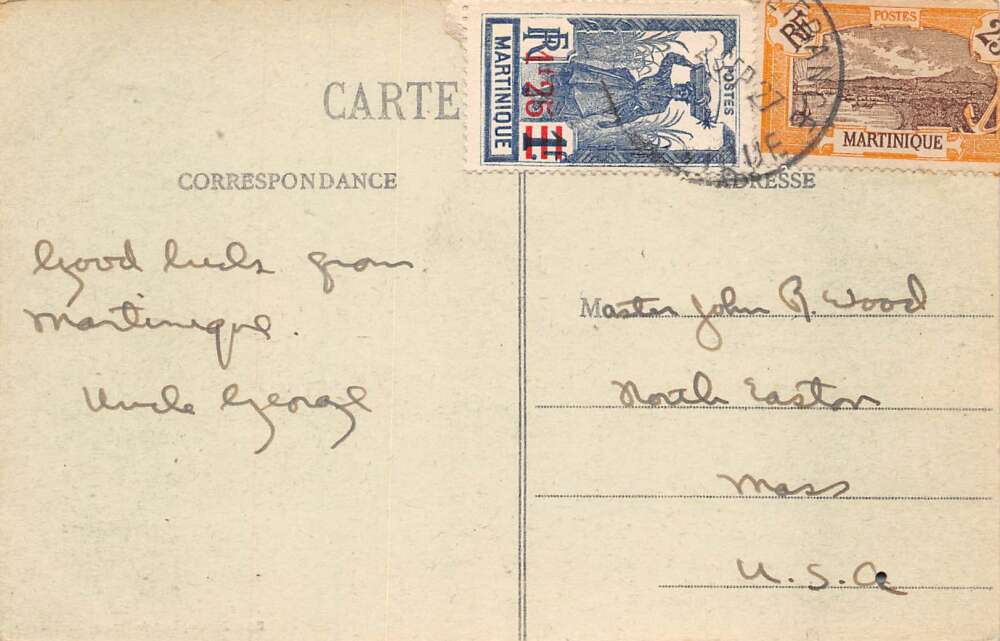 CARTE
RF
1F25
1F
MARTINIQUE
POSTES
POSTES
RF
25
MARTINIQUE
SEP 27
CORRESPONDANCE
ADRESSE
Good luck from
Martinique.
Uncle George
Master John R. Wood
North Easton
Mass
U.S.A